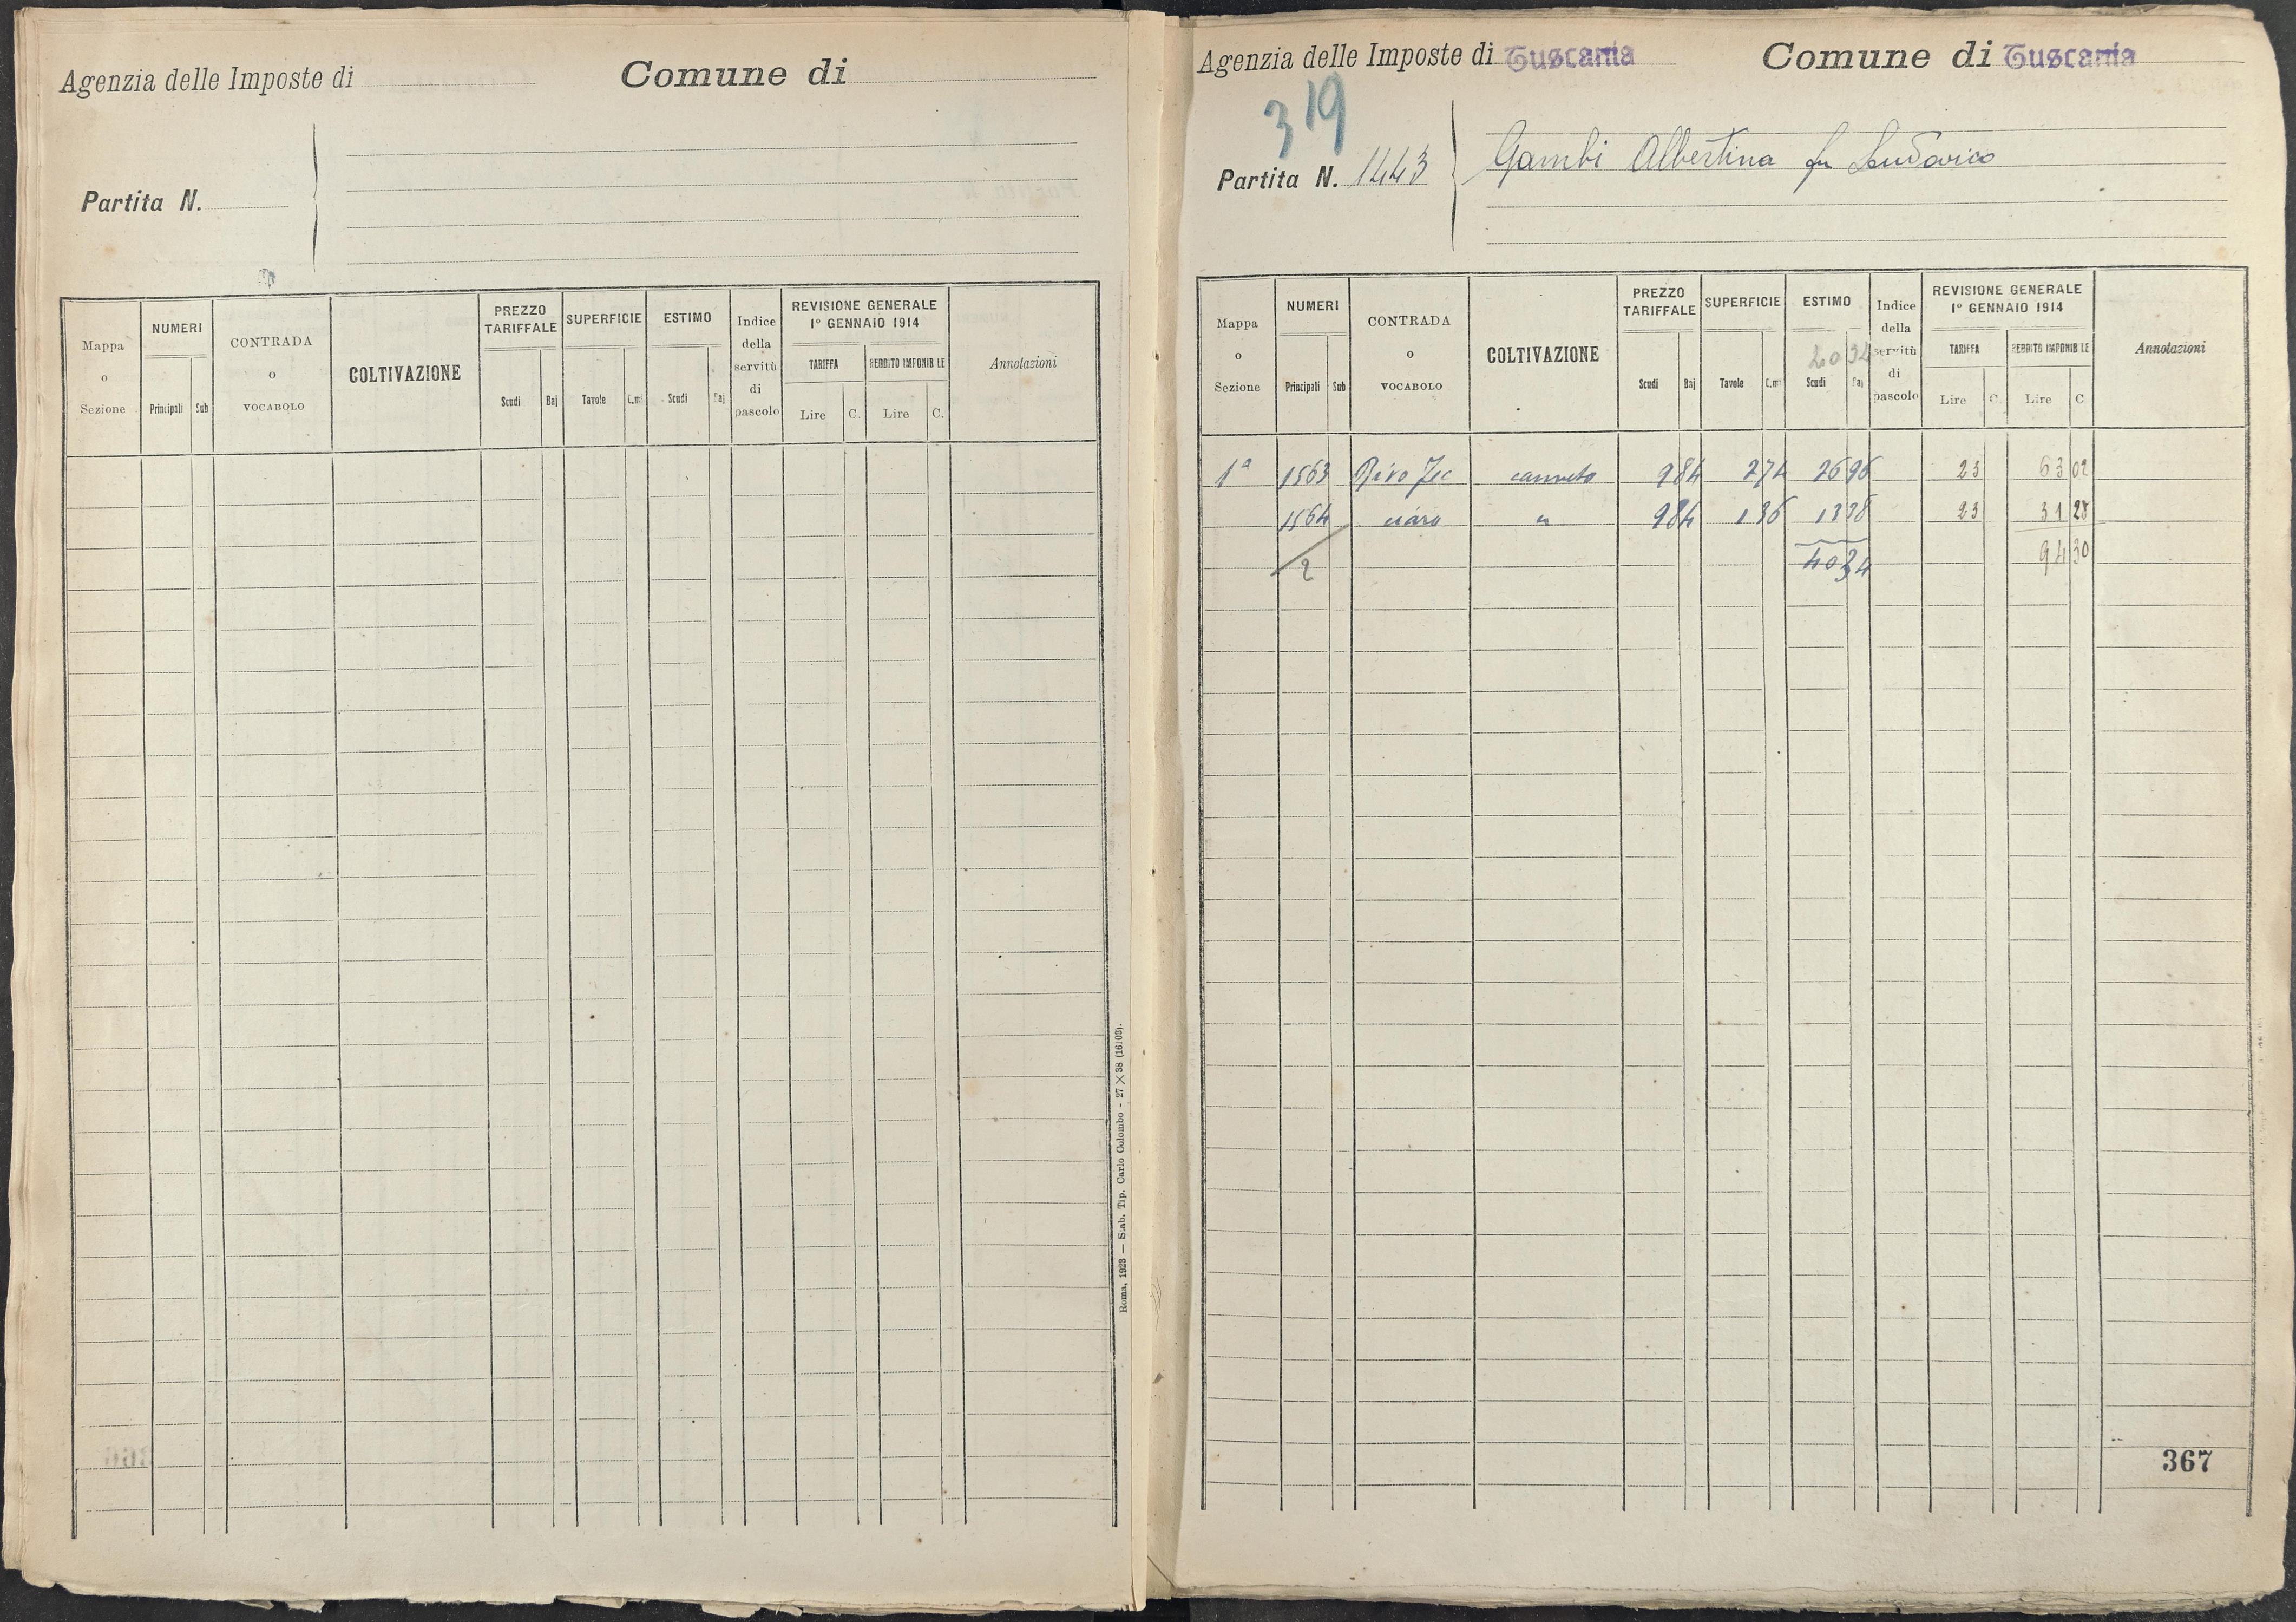 Agenzia delle Imposte di
Comune di
Partita N.
Mappa o Sezione
NUMERI
Principali Sub
CONTRADA o VOCABOLO
COLTIVAZIONE
PREZZO TARIFFALE
Scudi Baj
SUPERFICIE
Tavole C.mi
ESTIMO
Scudi Baj
Indice della servitù di pascolo
REVISIONE GENERALE
1° GENNAIO 1914
TARIFFA
Lire C.
REDDITO IMPONIBILE
Lire C.
Annotazioni
Roma, 1923 — Stab. Tip. Carlo Colombo - 27 X 38 (16.03).
Agenzia delle Imposte di Tuscania
Comune di Tuscania
319
Partita N. 1443
Gambi Albertina fu Ludovico
Mappa o Sezione
NUMERI
Principali Sub
CONTRADA o VOCABOLO
COLTIVAZIONE
PREZZO TARIFFALE
Scudi Baj
SUPERFICIE
Tavole C.mi
ESTIMO
40 34
Scudi Baj
Indice della servitù di pascolo
REVISIONE GENERALE
1° GENNAIO 1914
TARIFFA
Lire C.
REDDITO IMPONIBILE
Lire C.
Annotazioni
1a 1563 Rivo Fec canneto 9 84 2 74 26 96 23 63 02
1564 ciaro " 9 84 1 36 13 38 23 31 28
2 40 34 94 30
367